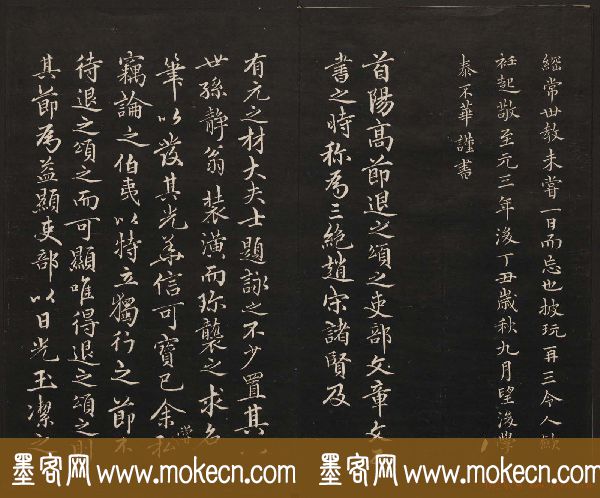 經常世教未嘗一日而忘也披玩再三令人歛
衽起敬至元三年後丁丑歲秋九月望後學
泰不華謹書
首陽高節退之頌之吏部文章文
書之時称爲三絶趙宋諸賢及
有元之材大夫士題詠之不少置其
世孫静翁装潢而珎襲之求名
筆以發其光華信可寳已余私
竊論之伯夷以特立獨行之節
待退之頌之而可顯唯得退之頌之則
其節爲益顯吏部以日光玉潔之
墨客网 www.mokecn.com 墨客网 www.mokecn.com